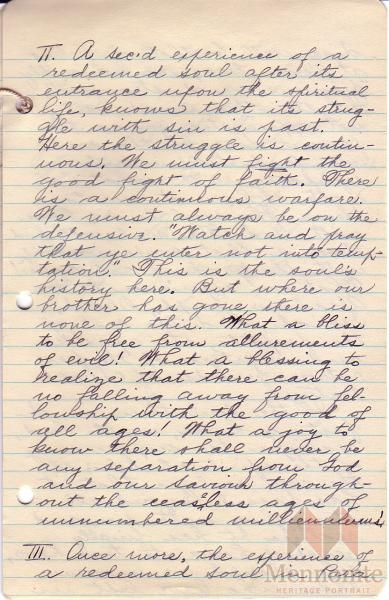 II. A sec'd experience of a
redeemed soul after its
entrance upon the spiritual
life, knows that its strug-
gle with sin is past.
Here the struggle is contin-
uous. We must fight the
good fight of faith. There
is a continuous warfare.
We must always be on the
defensive. "Watch and pray
that ye enter not into temp-
tation." This is the soul's
history here. But where our
brother has gone there is
none of this. What a bliss
to be free from allurements
of evil! What a blessing to
realize that there can be
no falling away from fel-
lowship with the good of
all ages! What a joy to
know there shall never be
any separation from God
and our Saviour through-
out the ceasless ages of
unnumbered millenniums.
III. Once more, the experience of
a redeemed soul in
Mennonite
HERITAGE PORTRAIT